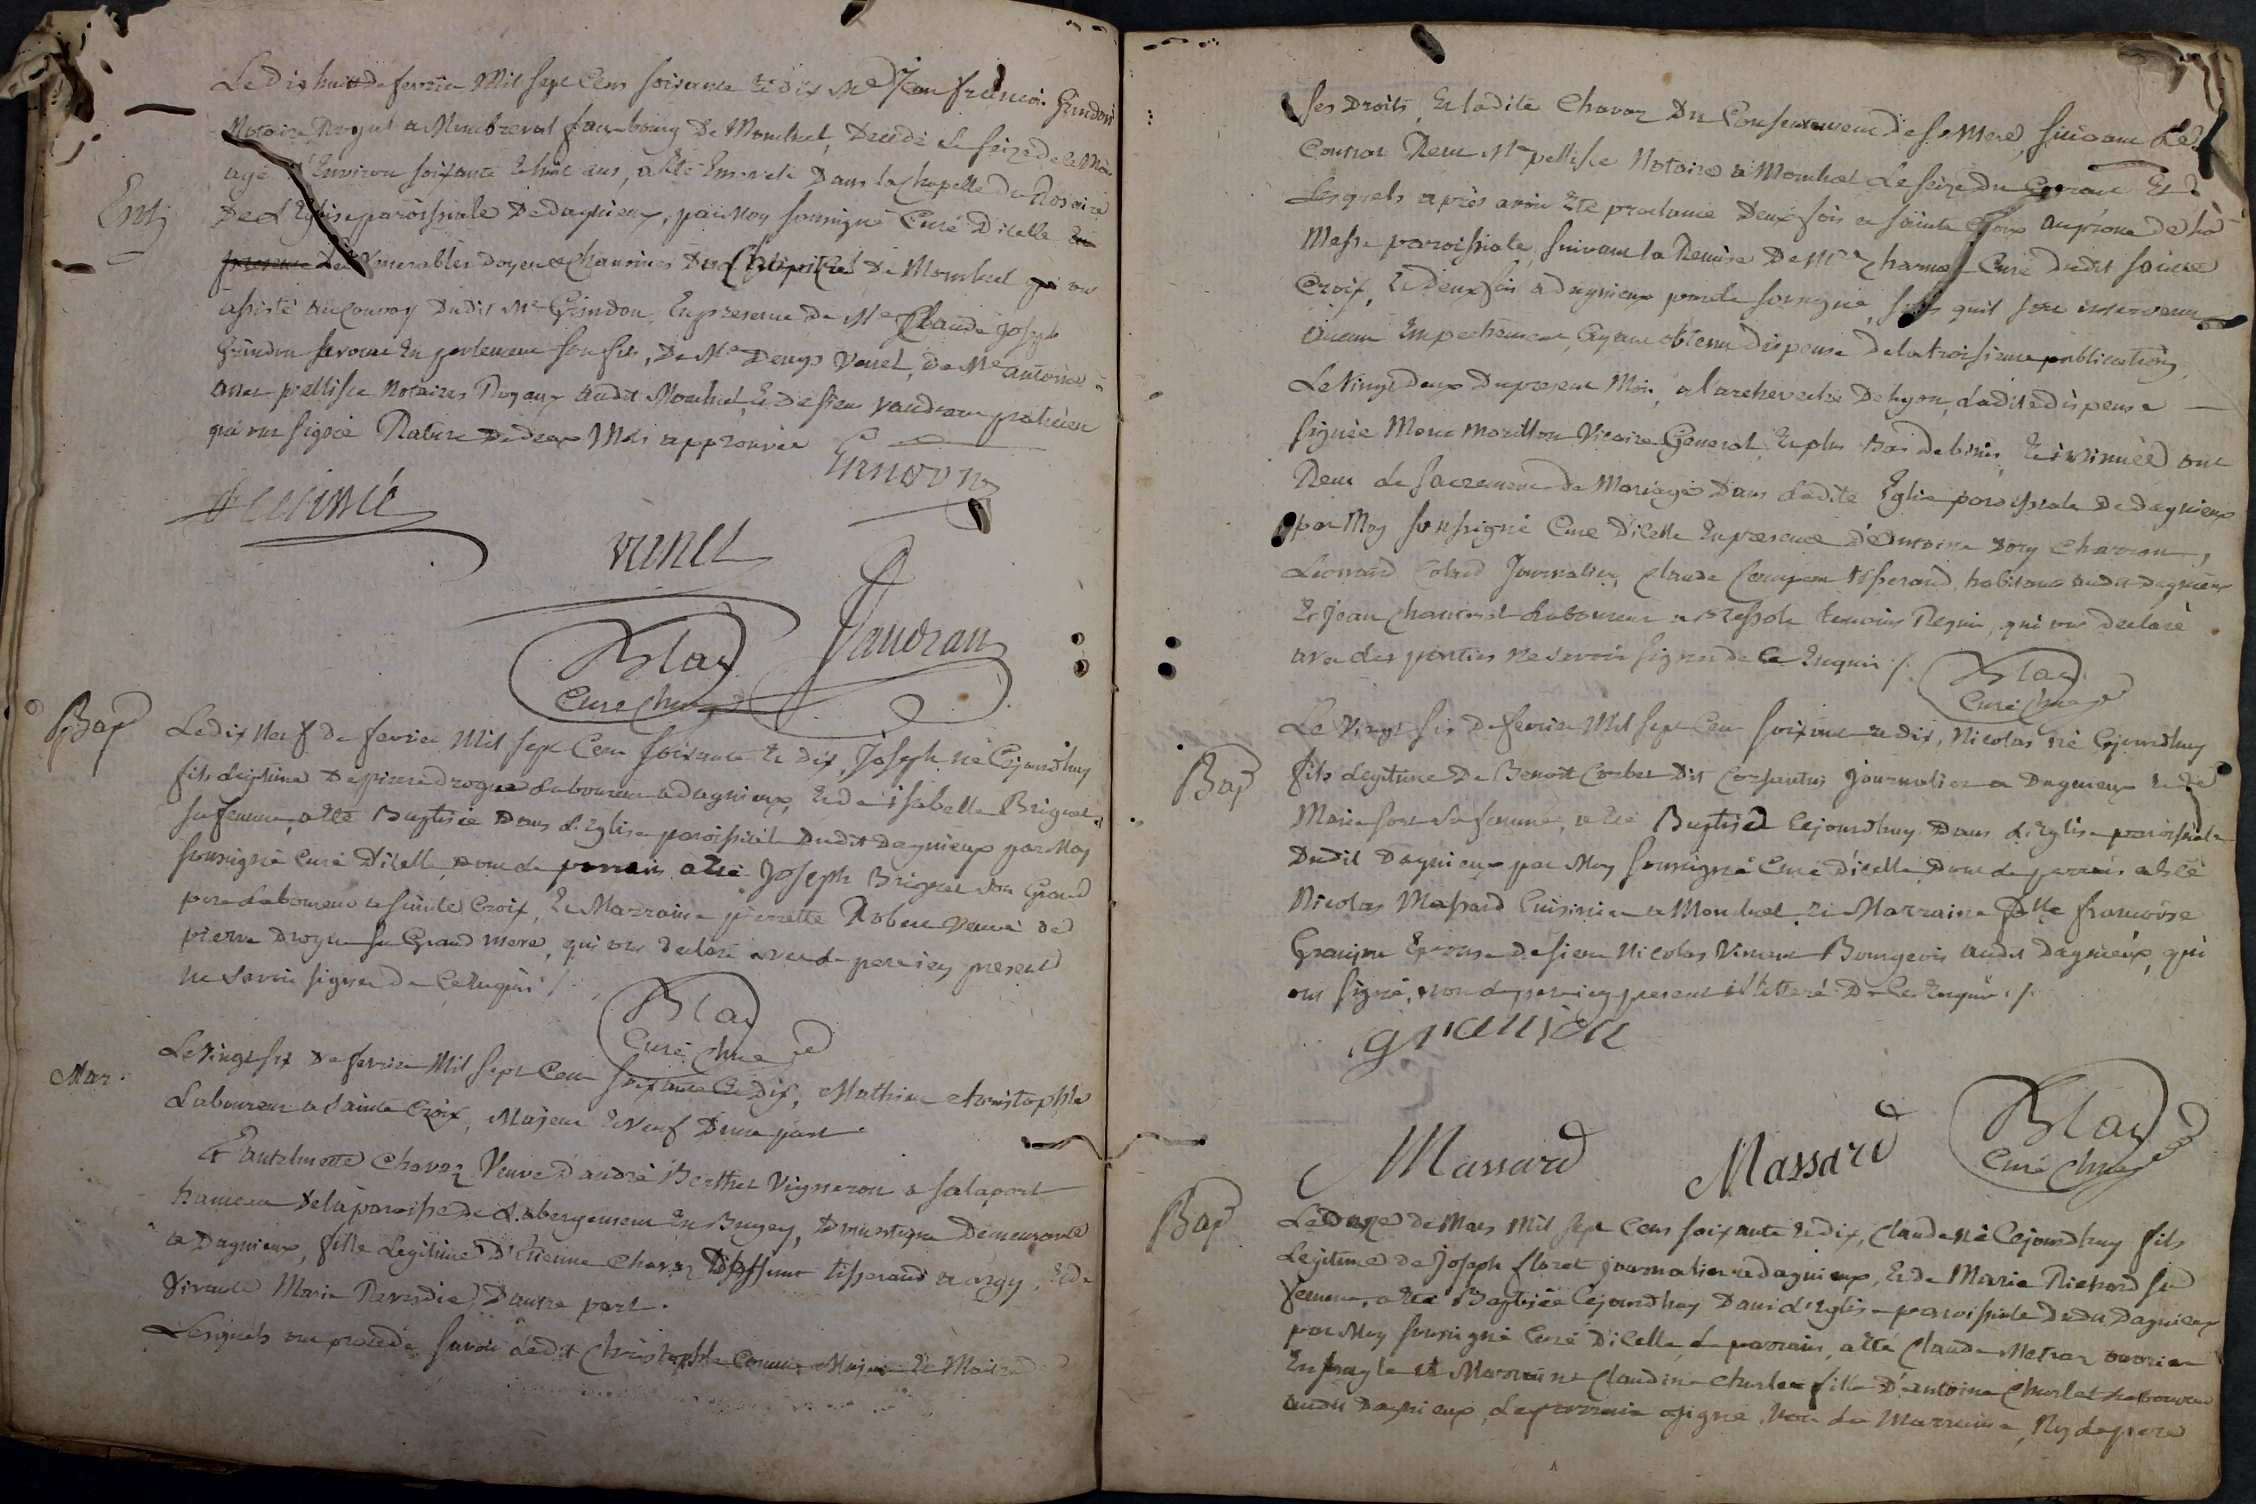 Le dix huit de fevrier Mil sept Cens soixante et dix Me Jean francois Grindon
Notaire Royal a Montreval faux bourg De Montluel, Decedé le seize de ce Moi
agé d'Environ soixante et huit ans, a Eté Enseveli Dans la Chapelle du Rosaire
Entz
De l'Eglise paroissiale De dagnieux, par Moy soussigné Curé D'icelle En
presence Des Venerables Doyen et Chanoines Du Chapitre De Montluel qui ont
assisté au Convoy Dudit Me Grindon, En presence de Me Claude Joseph
Grindon avocat En parlement son fils, De Me Denys Venet, De Me antoine
pellisse Notaires Royaux audit Montluel, et De sieur Vaudran praticien
qui ont signé Rature De deux Mots approuvée
Grindon
Venet
Vaudran
Blay
Curé
Bap
Le dix Neuf de fevrier Mil sept Cens soixante et dix, Joseph né Cejourdhuy
fils Legitime De pierre drogue Laboureur a dagnieux, et de isabelle Brignet
sa femme, a Eté Baptisé Dans l'Eglise paroissiale Dudit Dagnieux par Moy
soussigné Curé D'icelle, Dont le parrain a Eté Joseph Brignet son Grand
pere Laboureur a sainte Croix, et Marraine pierrette Robert Veuve de
pierre Drogue sa Grand mere, qui ont declaré avec le pere icy present
Ne savoir signer de ce Requis /.
Blay
Curé
Mar.
Le Vingt six De fevrier Mil sept Cens soixante et dix, Mathieu Christophle
Laboureur a sainte Croix, Majeur et Veuf D'une part
Et antelmette Chavoz Veuve d'andré Berthet Vigneron a salaport
hameau De la paroisse de L'abergement En Bugey, Domestique Demeurante
a Dagnieux, fille Legitime D'Etienne Chavoz Deffunt tisserand et de
Vivante Marie D'autre part.
Lesquels ont procedé savoir ledit Christophle Comme Majeur et Maitre de
ses Droits, Et ladite Chavoz Du Consentement de sa Mere, suivant Le
Contrat Recu Me pellisse Notaire a Montluel le seize du Courant Et
Lesquels après avoir Eté proclamé Deux fois a sainte Croix au prone de la
Messe paroissiale, suivant la Remise De Mre Curé dudit sainte
Croix, et deux fois a dagnieux par le soussigné, sans quil soit intervenu
aucun Empechement, Ayant obtenu dispense De la troisieme publication
Le Vingt deux Du present Mois, a l'archeveché De Lyon, Ladite dispense
signée Vicaire General, Et plus Bas et insinuée ont
Recu le sacrement De Mariage Dans Ladite Eglise paroissiale De dagnieux
par Moy soussigné Curé D'icelle En presence D'antoine Charron,
Leonard Journalier, Claude tisserand, habitans audit dagnieux
Et Jean Laboureur a Bressole temoins Requis, qui ont declaré
avec les parties Ne savoir signer de ce Enquis /.
Blay
Curé
Bap
Le Vingt six De fevrier Mil sept Cens soixante et dix, Nicolas né Cejourdhuy
fils Legitime De Benoit Corbet Dit journalier a Dagnieux et de
Marie sa femme, a Eté Baptisé Cejourdhuy Dans l'Eglise paroissiale
Dudit Dagnieux par Moy soussigné Curé D'icelle, Dont le parrain a Eté
Nicolas Massard Cuisinier a Montluel et Marraine Delle francoise
Granjon Epouse De sieur Nicolas Vincent Bourgeois audit Dagnieux, qui
ont signé, Non le pere icy present illetteré De ce Enquis ./.
granjon
Massard
Massard
Blay
Curé
Bap
Le onze de Mars Mil sept Cens soixante et dix, Claude Né Cejourdhuy fils
Legitime de Joseph floret journalier a dagnieux, et de Marie Richard sa
femme, a Eté Baptisé Cejourdhuy Dans l'Eglise paroissiale Dudit Dagnieux
par Moy soussigné Curé D'icelle, Le parrain a Eté Claude
et Marraine Claudine Churlet fille D'antoine Churlet Laboureur
audit Dagnieux, Le parrain a signé, Non la Marraine, Ny le pere